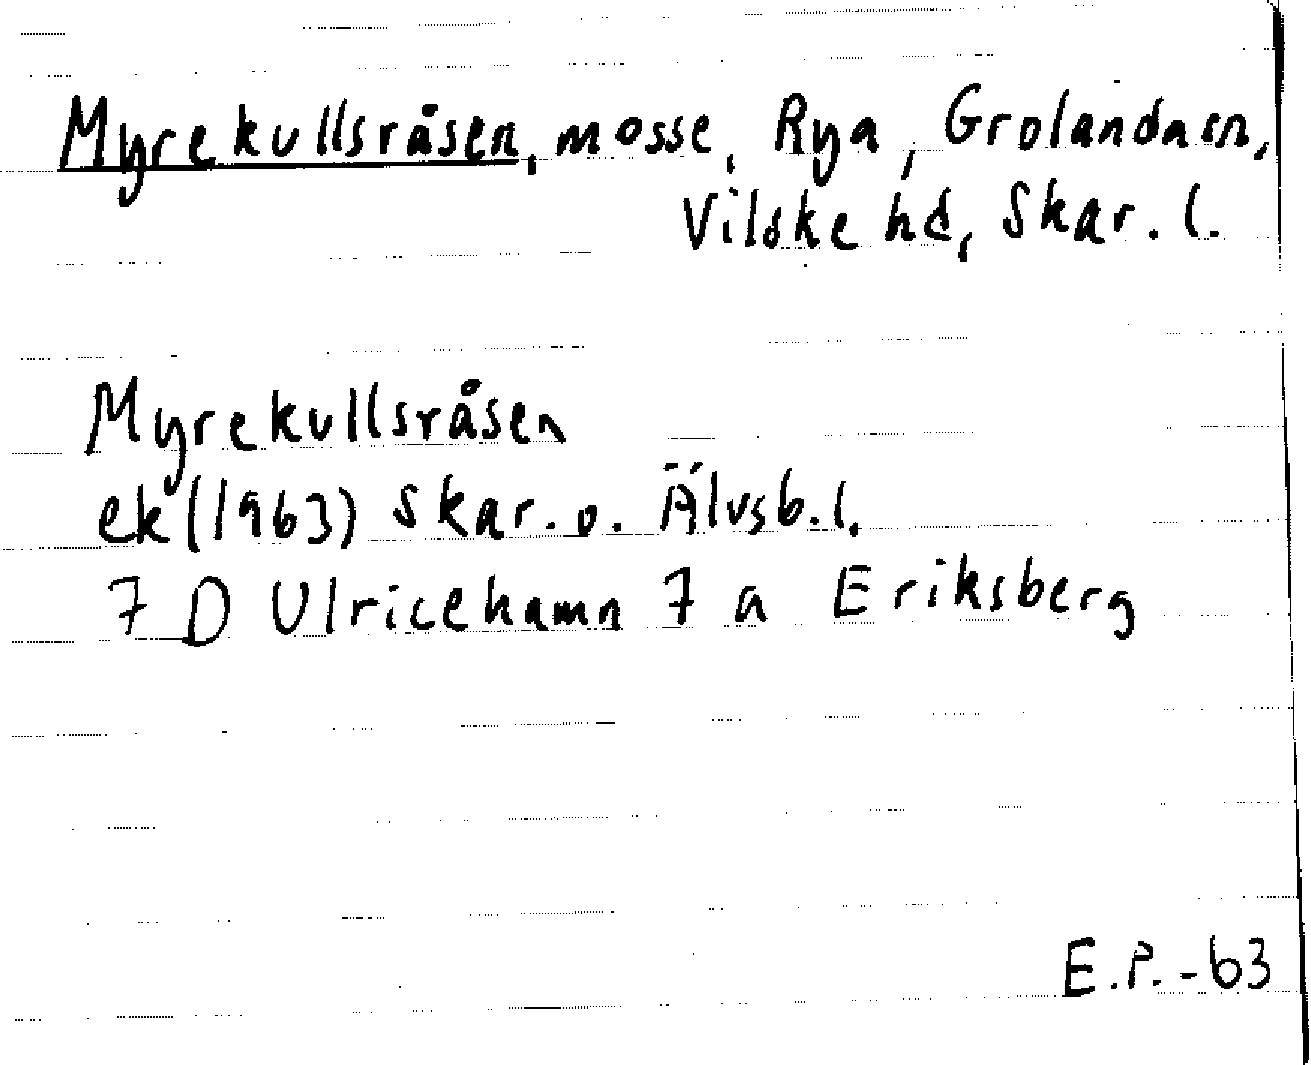 Myrekullsråsen, mosse, Rya, Grolanda sn,
Vilske hd, Skar. l.
Myrekullsråsen
ek (1963) Skar. o. Älvsb. l.
7 D Ulricehamn 7 a Eriksberg
E.P.-63